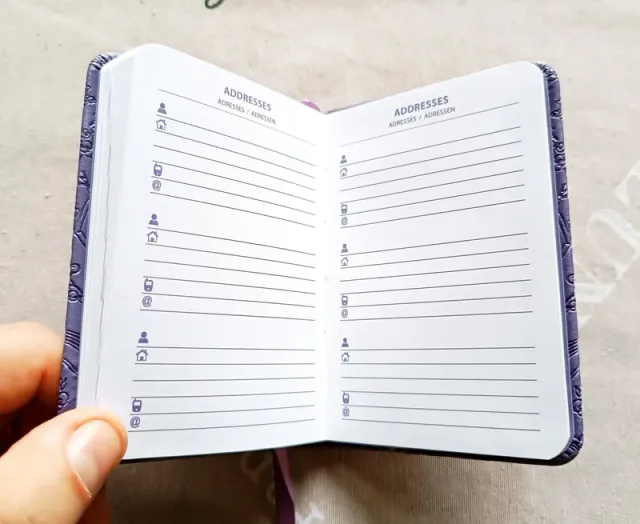 ADDRESSES
ADRESSES / ADRESSEN
@
@
@
ADDRESSES
ADRESSES / ADRESSEN
@
@
@